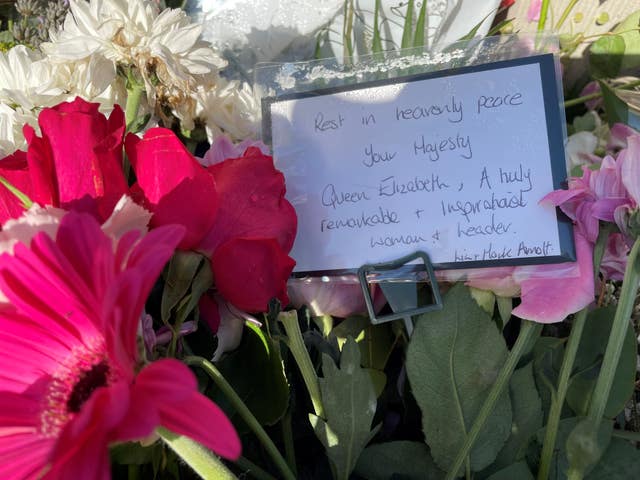 Rest in heavenly peace
Your Majesty
Queen Elizabeth, A truly
remarkable + Inspirational
woman + Leader.
Mark Arnott.